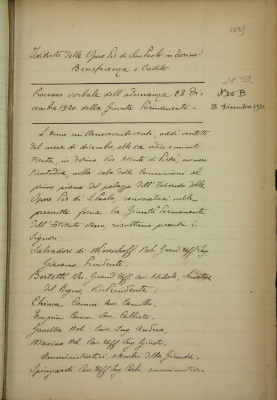 1029
Istituto delle Opere Pie di San Paolo in Torino
Beneficenza e Credito
Processo verbale dell'adunanza 28 Di-
cembre 1920 della Giunta Permanente -
N° 30 B
28 Dicembre 1920
L'Anno millenovecentoventi, addì ventotto
del mese di dicembre, alle ore dieci e minuti
trenta, in Torino Via Monte di Pietà, numero
trentadue, nella sala delle Commissioni al
primo piano del palazzo dell'Istituto delle
Opere Pie di S. Paolo, convocatasi nelle
prescritte forme la Giunta Permanente
dell'Istituto stesso, risultano presenti i
Signori:
Salvadori di Wiesenhoff Nob. Grand'Uff. Ing.
Giacomo, Presidente;
Bertetti Gr. Uff. Avv. Michele, Senatore
del Regno, Vicepresidente;
Chiesa Comm. Avv. Camillo,
Emprin Comm. Avv. Callisto,
Gonella Nob. Cav. Ing. Andrea,
Masino Nob. Cav. Uff. Ing. Giusto,
Amministratori, membri della Giunta;
Spingardi Cav. Uff. Ing. Carlo, amministratore